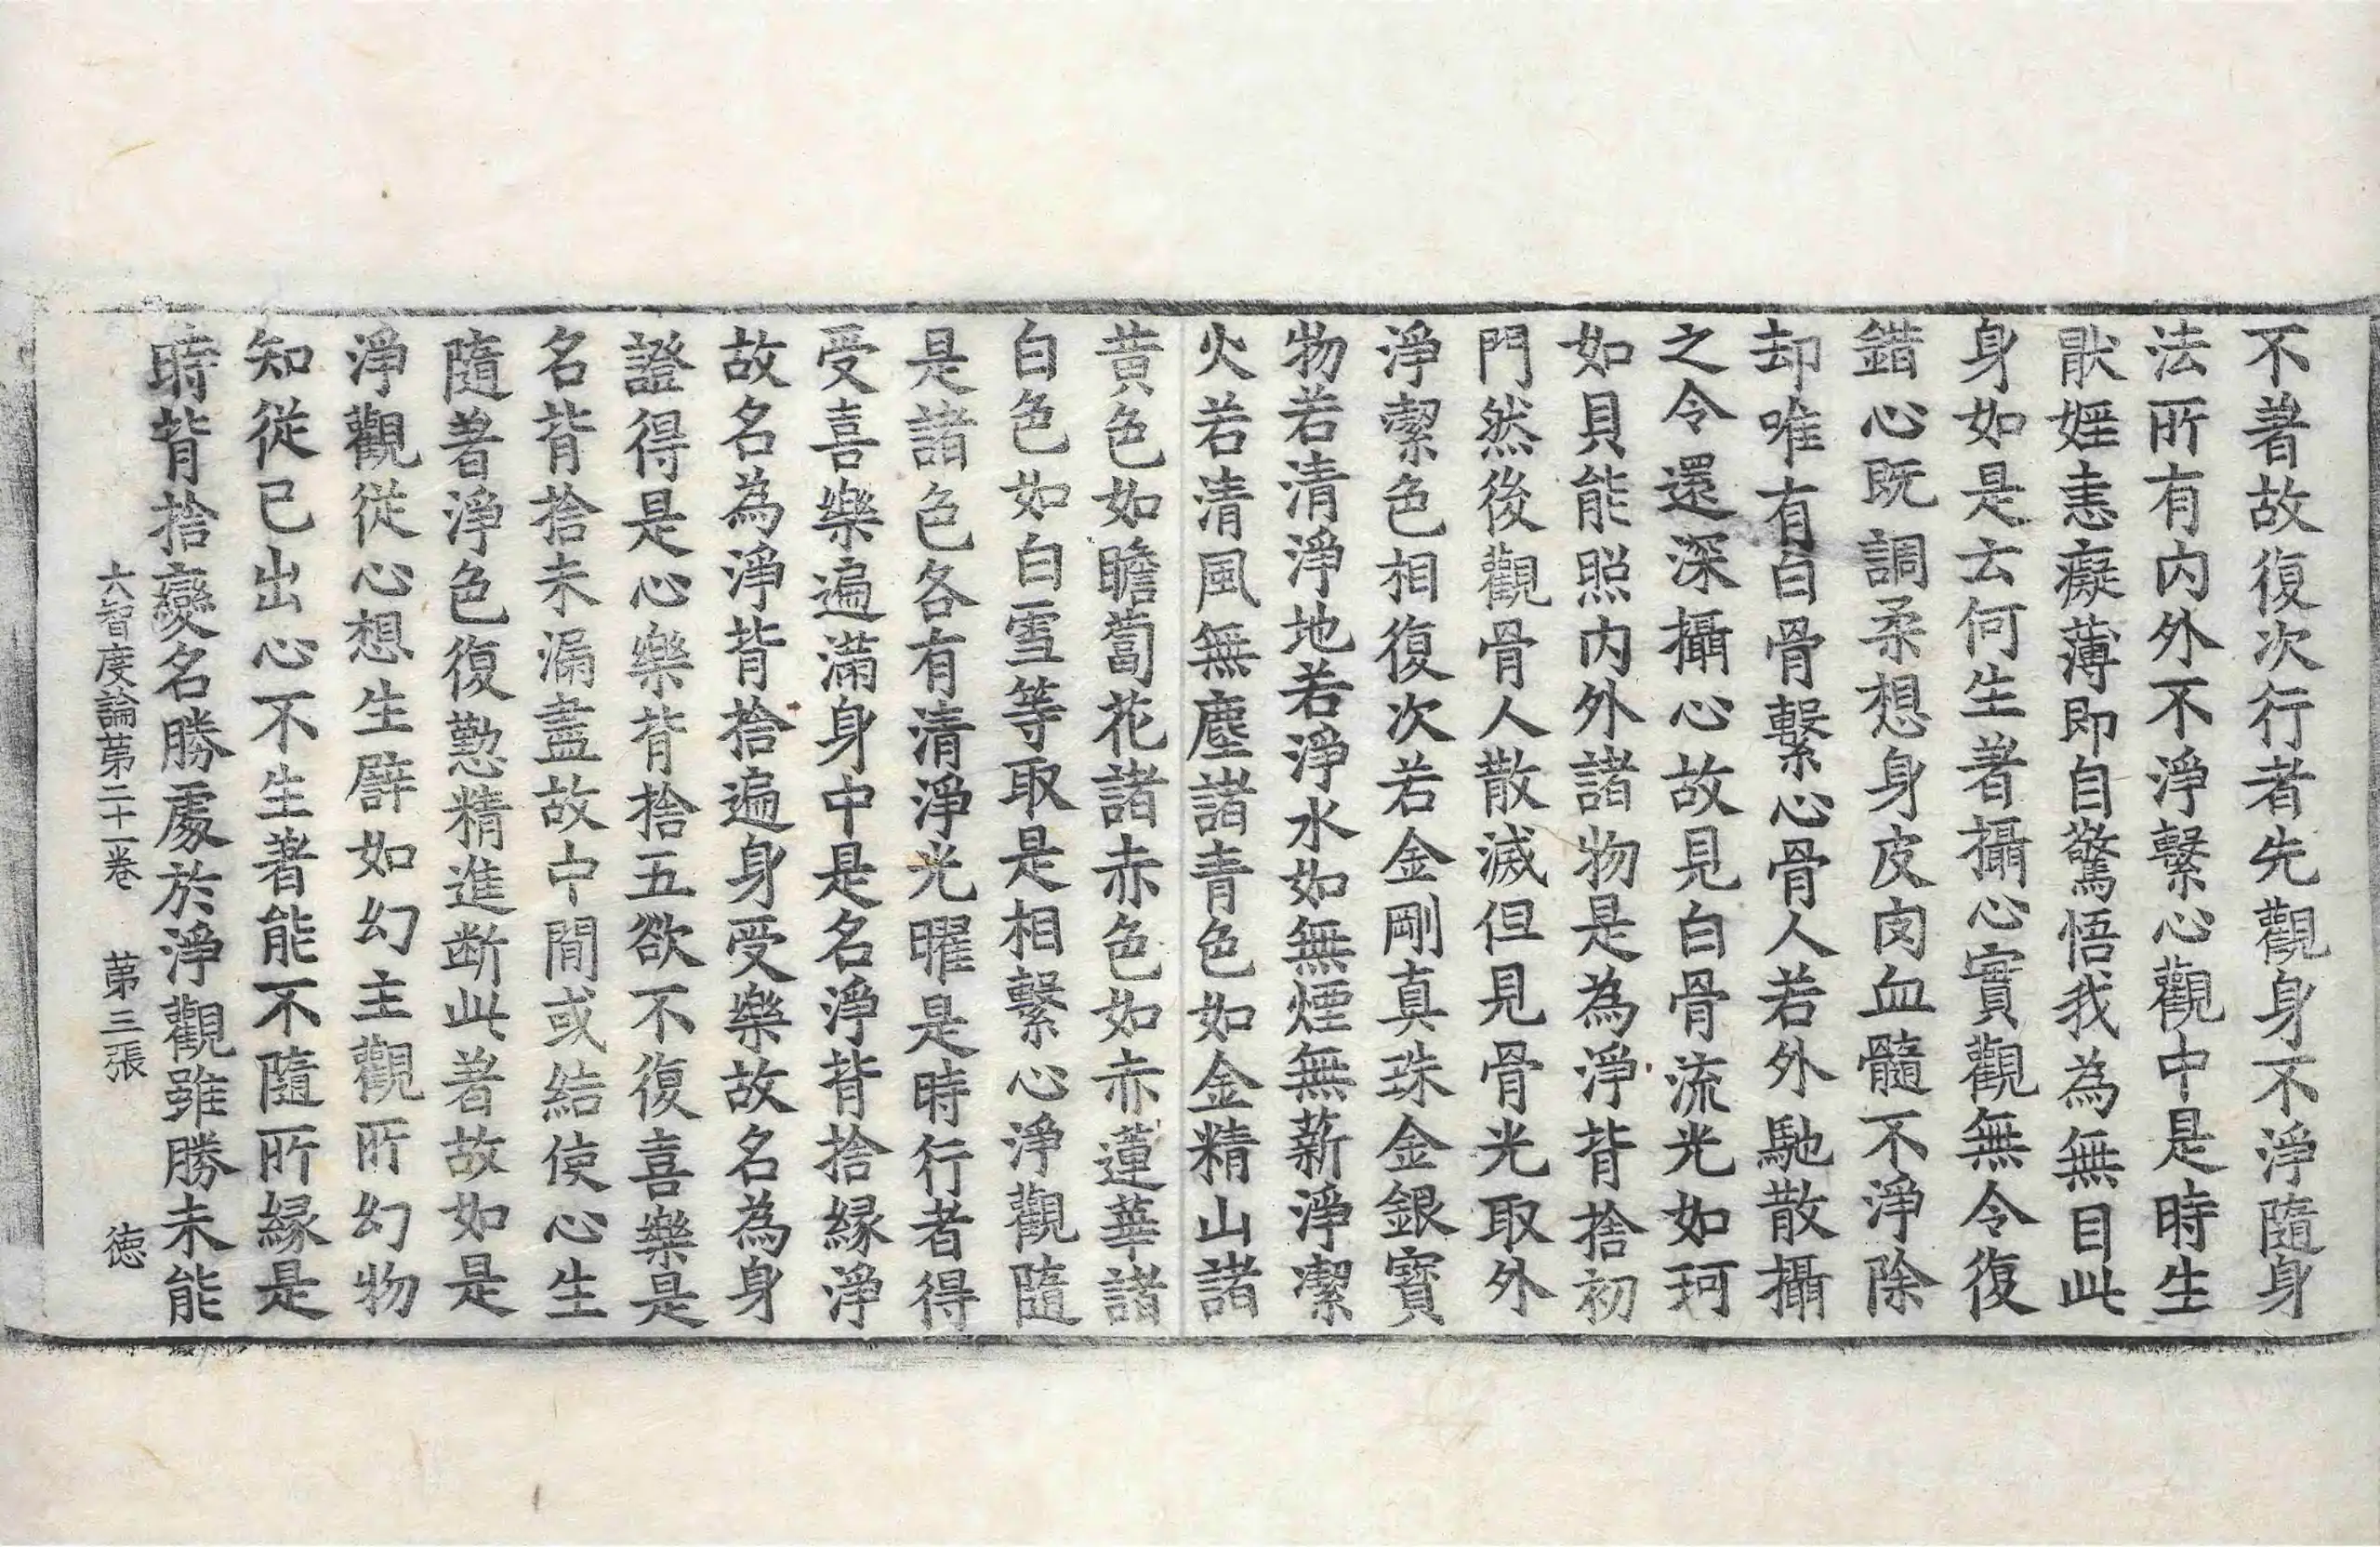 不著故復次行者先觀身不淨隨身
法所有内外不淨繫心觀中是時生
猒婬恚癡薄即自驚悟我為無目此
身如是云何生著攝心實觀無令復
錯心既調柔想身皮肉血髓不淨除
却唯有白骨繫心骨人若外馳散攝
之令還深攝心故見白骨流光如珂
如貝能照内外諸物是為淨背捨初
門然後觀骨人散滅但見骨光取外
淨潔色相復次若金剛真珠金銀寶
物若清淨地若淨水如無煙無薪淨潔
火若清風無塵諸青色如金精山諸
黃色如瞻蔔花諸赤色如赤蓮華諸
白色如白雪等取是相繫心淨觀隨
是諸色各有清淨光曜是時行者得
受喜樂遍滿身中是名淨背捨緣淨
故名為淨背捨遍身受樂故名為身
證得是心樂背捨五欲不復喜樂是
名背捨未漏盡故中間或結使心生
隨著淨色復懃精進断此著故如是
淨觀從心想生譬如幻主觀所幻物
知從已出心不生著能不隨所緣是
時背捨變名勝處於淨觀雖勝未能
大智度論第二十一卷　第三張　徳